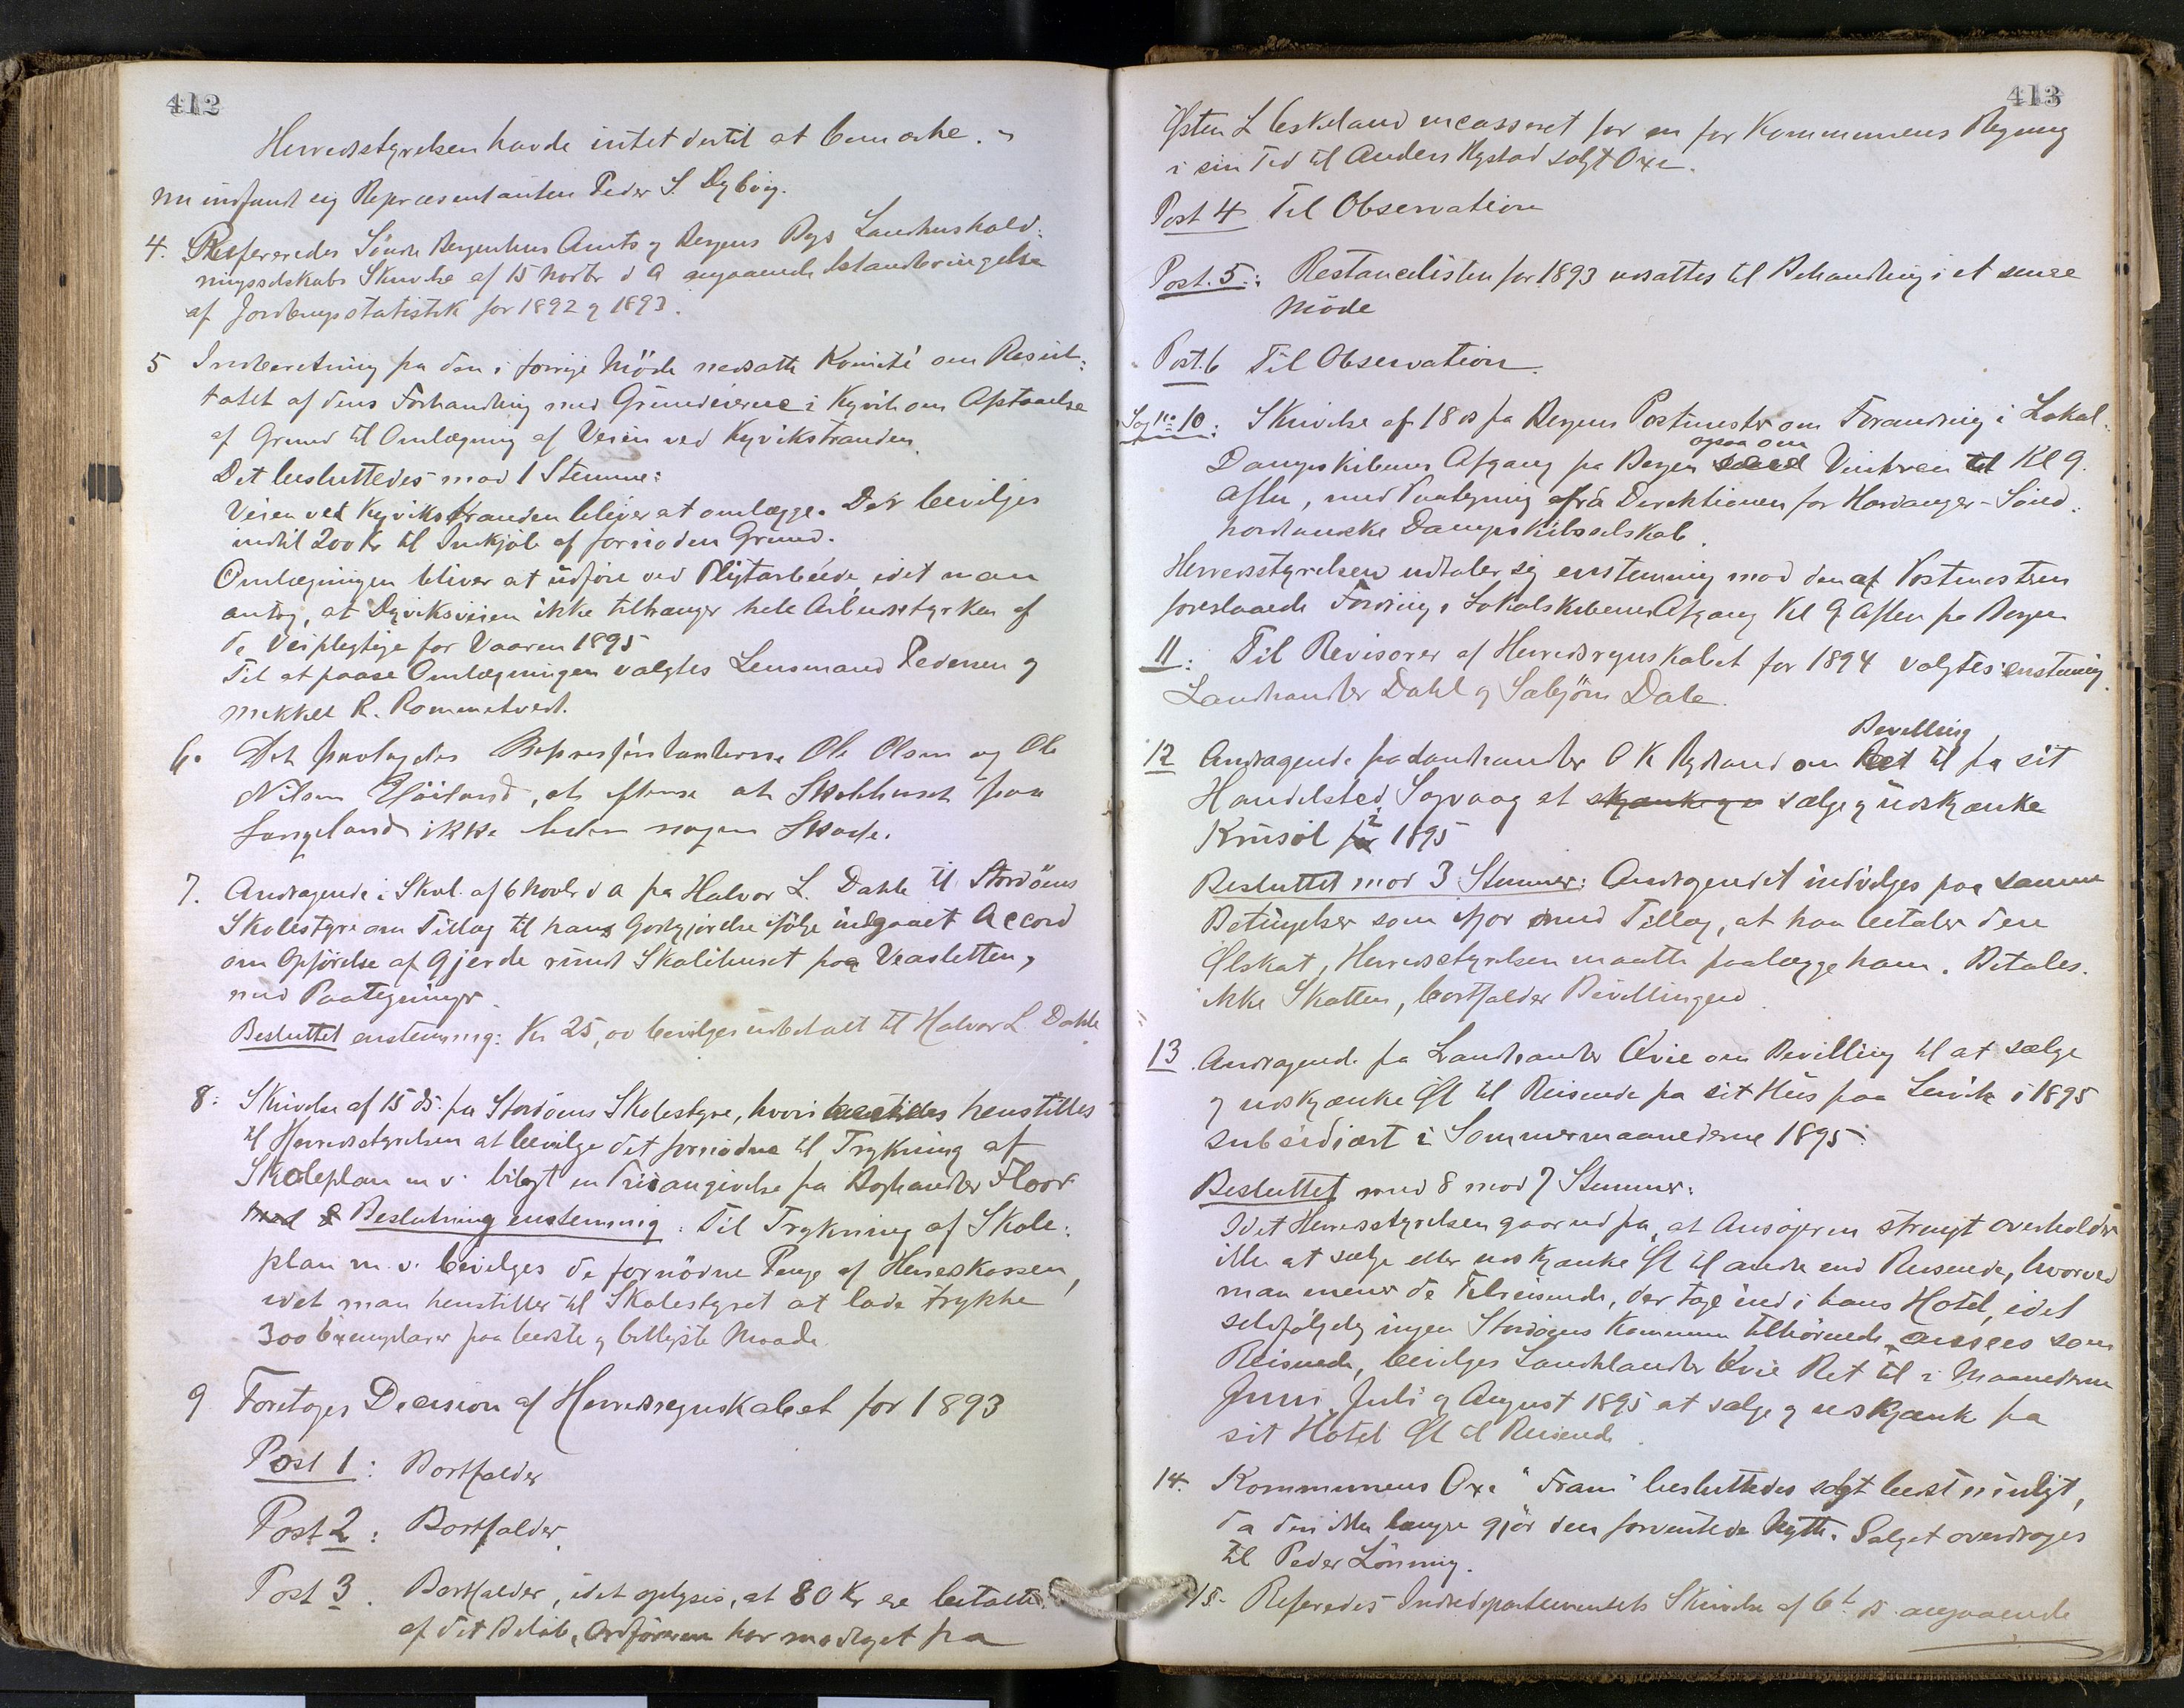 412
Herredsstyrelsen havde intet dertil at bemærke.
Nu indfandt sig Repræsentanten Peder S. Dybvig.
4. Refereredes Söndre Bergenhus Amts og Bergens Bys Landhushold-
ningsselskabs Skrivelse af 15 Novbr d A angaaende Istandbringelse
af Jordbrugsstatistik for 1892 og 1893.
5 Indberetning fra den i forrige Möde nedsatte Komité om Resul-
tatet af dens Forhandling med Grundeierne i Kyvik om Afstaaelse
af Grund til Omlægning af Veien ved Kyvikstranden.
Det besluttedes mod 1 Stemme:
Veien ved Kyvikstranden bliver at omlægge. Der bevilges
indtil 200 Kr til Indkjöb af fornöden Grund.
Omlægningen bliver at udföre ved Pligtarbeide, idet man
antog, at Dyviksveien ikke tiltrænger hele Arbeidsstyrken af
de Veipligtige for Vaaren 1895
Til at paase Omlægningen valgtes Lensmand Pedersen og
Mikkel R. Rommetvedt.
6. Det paalagdes Repræsentanterne Ole Olsen og Ole
Nilsen Höiland, at efterse at Skolehuset paa
Langeland ikke lider nogen Skade.
7. Andragende i Skriv. af 6 Novbr d A fra Halvor L. Dahle til Stordöens
Skolestyre om Tillæg til hans Godtgjörelse ifölge indgaaet Accord
om Opförelse af Gjerde rundt Skolehuset paa Veasletten,
med Paategninger.
Besluttet enstemmig: Kr 25,00 bevilges udbetalt til Halvor L. Dahle
8: Skrivelse af 15 ds. fra Stordöens Skolestyre, hvori henstilles henstilles
til Herredsstyrelsen at bevilge det fornödne til Trykning af
Skoleplan m v. bilagt en Prisangivelse fra Boghandler Floor
Med 8 Beslutning enstemmig: Til Trykning af Skole-
plan m. v. bevilges de fornödne Penge af Herredskassen,
idet man henstiller til Skolestyret at lade trykke
300 Exemplarer paa bedste og billigste Maade.
9 Foretoges Decision af Herredsregnskabet for 1893
Post 1: Bortfalder
Post 2: Bortfalder.
Post 3. Bortfalder, idet oplyses, at 80 Kr er betalte
af det Belöb, Ordföreren har modtaget fra
413
Östen L Eskeland incasseret for en for Kommunens Regning
i sin Tid til Anders Rystad solgt Oxe.
Post 4 Til Observation
Post. 5: Restancelisten for 1893 udsattes til Behandling i et senere
Möde
Post. 6 Til Observation.
Sag No 10: Skrivelse af 18 ds fra Bergens Postmester om Forandring i Lokal-
Dampskibenes Afgang fra Bergen ogsaa om Vinteren til Kl 9
Aften, med Paategning ifra Direktionen for Hardanger-Sönd-
hordlandske Dampskibsselskab.
Herredsstyrelsen udtaler sig enstemmig mod den af Postmesteren
foreslaaede Forandring i Lokalskibenes Afgang Kl 9 Aften fra Bergen
11: Til Revisorer af Herredsregnskabet for 1894 valgtes enstemmig
Landhandler Dahl og Salgjörn Dale.
12 Andragende fra Landhandler O K Rydland om Ret Bevilling til fra sit
Handelsted Sagvaag at skjænke og sælge og udskjænke
Krusöl for i 1895
Besluttet mod 3 Stemmer: Andragendet indvilges paa samme
Betingelser som ifjor med Tillæg, at han betaler den
Ölskat, Herredsstyrelsen maatte paalægge ham. Betales
ikke Skatten, bortfalder Bevillingen.
13 Andragende fra Landhandler Qvie om Bevilling til at sælge
og udskjænke Öl til Reisende fra sit Hus paa Lervik i 1895
subsidiært i Sommermaanederne 1895.
Besluttet med 8 mod 7 Stemmer:
Idet Herredsstyrelsen gaar ud fra, at Ansögeren strengt overholder
ikke at sælge eller udskjænke Öl til andre end Reisende, hvorved
man mener de Tilreisende, der tage ind i hans Hotel, idet
selvfölgelig ingen Stordöens Kommune tilhörende ansees som
Reisende, bevilges Landhandler Qvie Ret til i Maanederne
Juni, Juli og August 1895 at sælge og udskjænke fra
sit Hotel Öl til Reisende.
14. Kommunens Oxe "Fram" besluttedes solgt bedst muligt,
da den ikke længere gjör den forventede Nytte. Salget overdroges
til Peder Lönning.
15. Referedes Indredepartementets Skrivelse af 6te ds angaaende